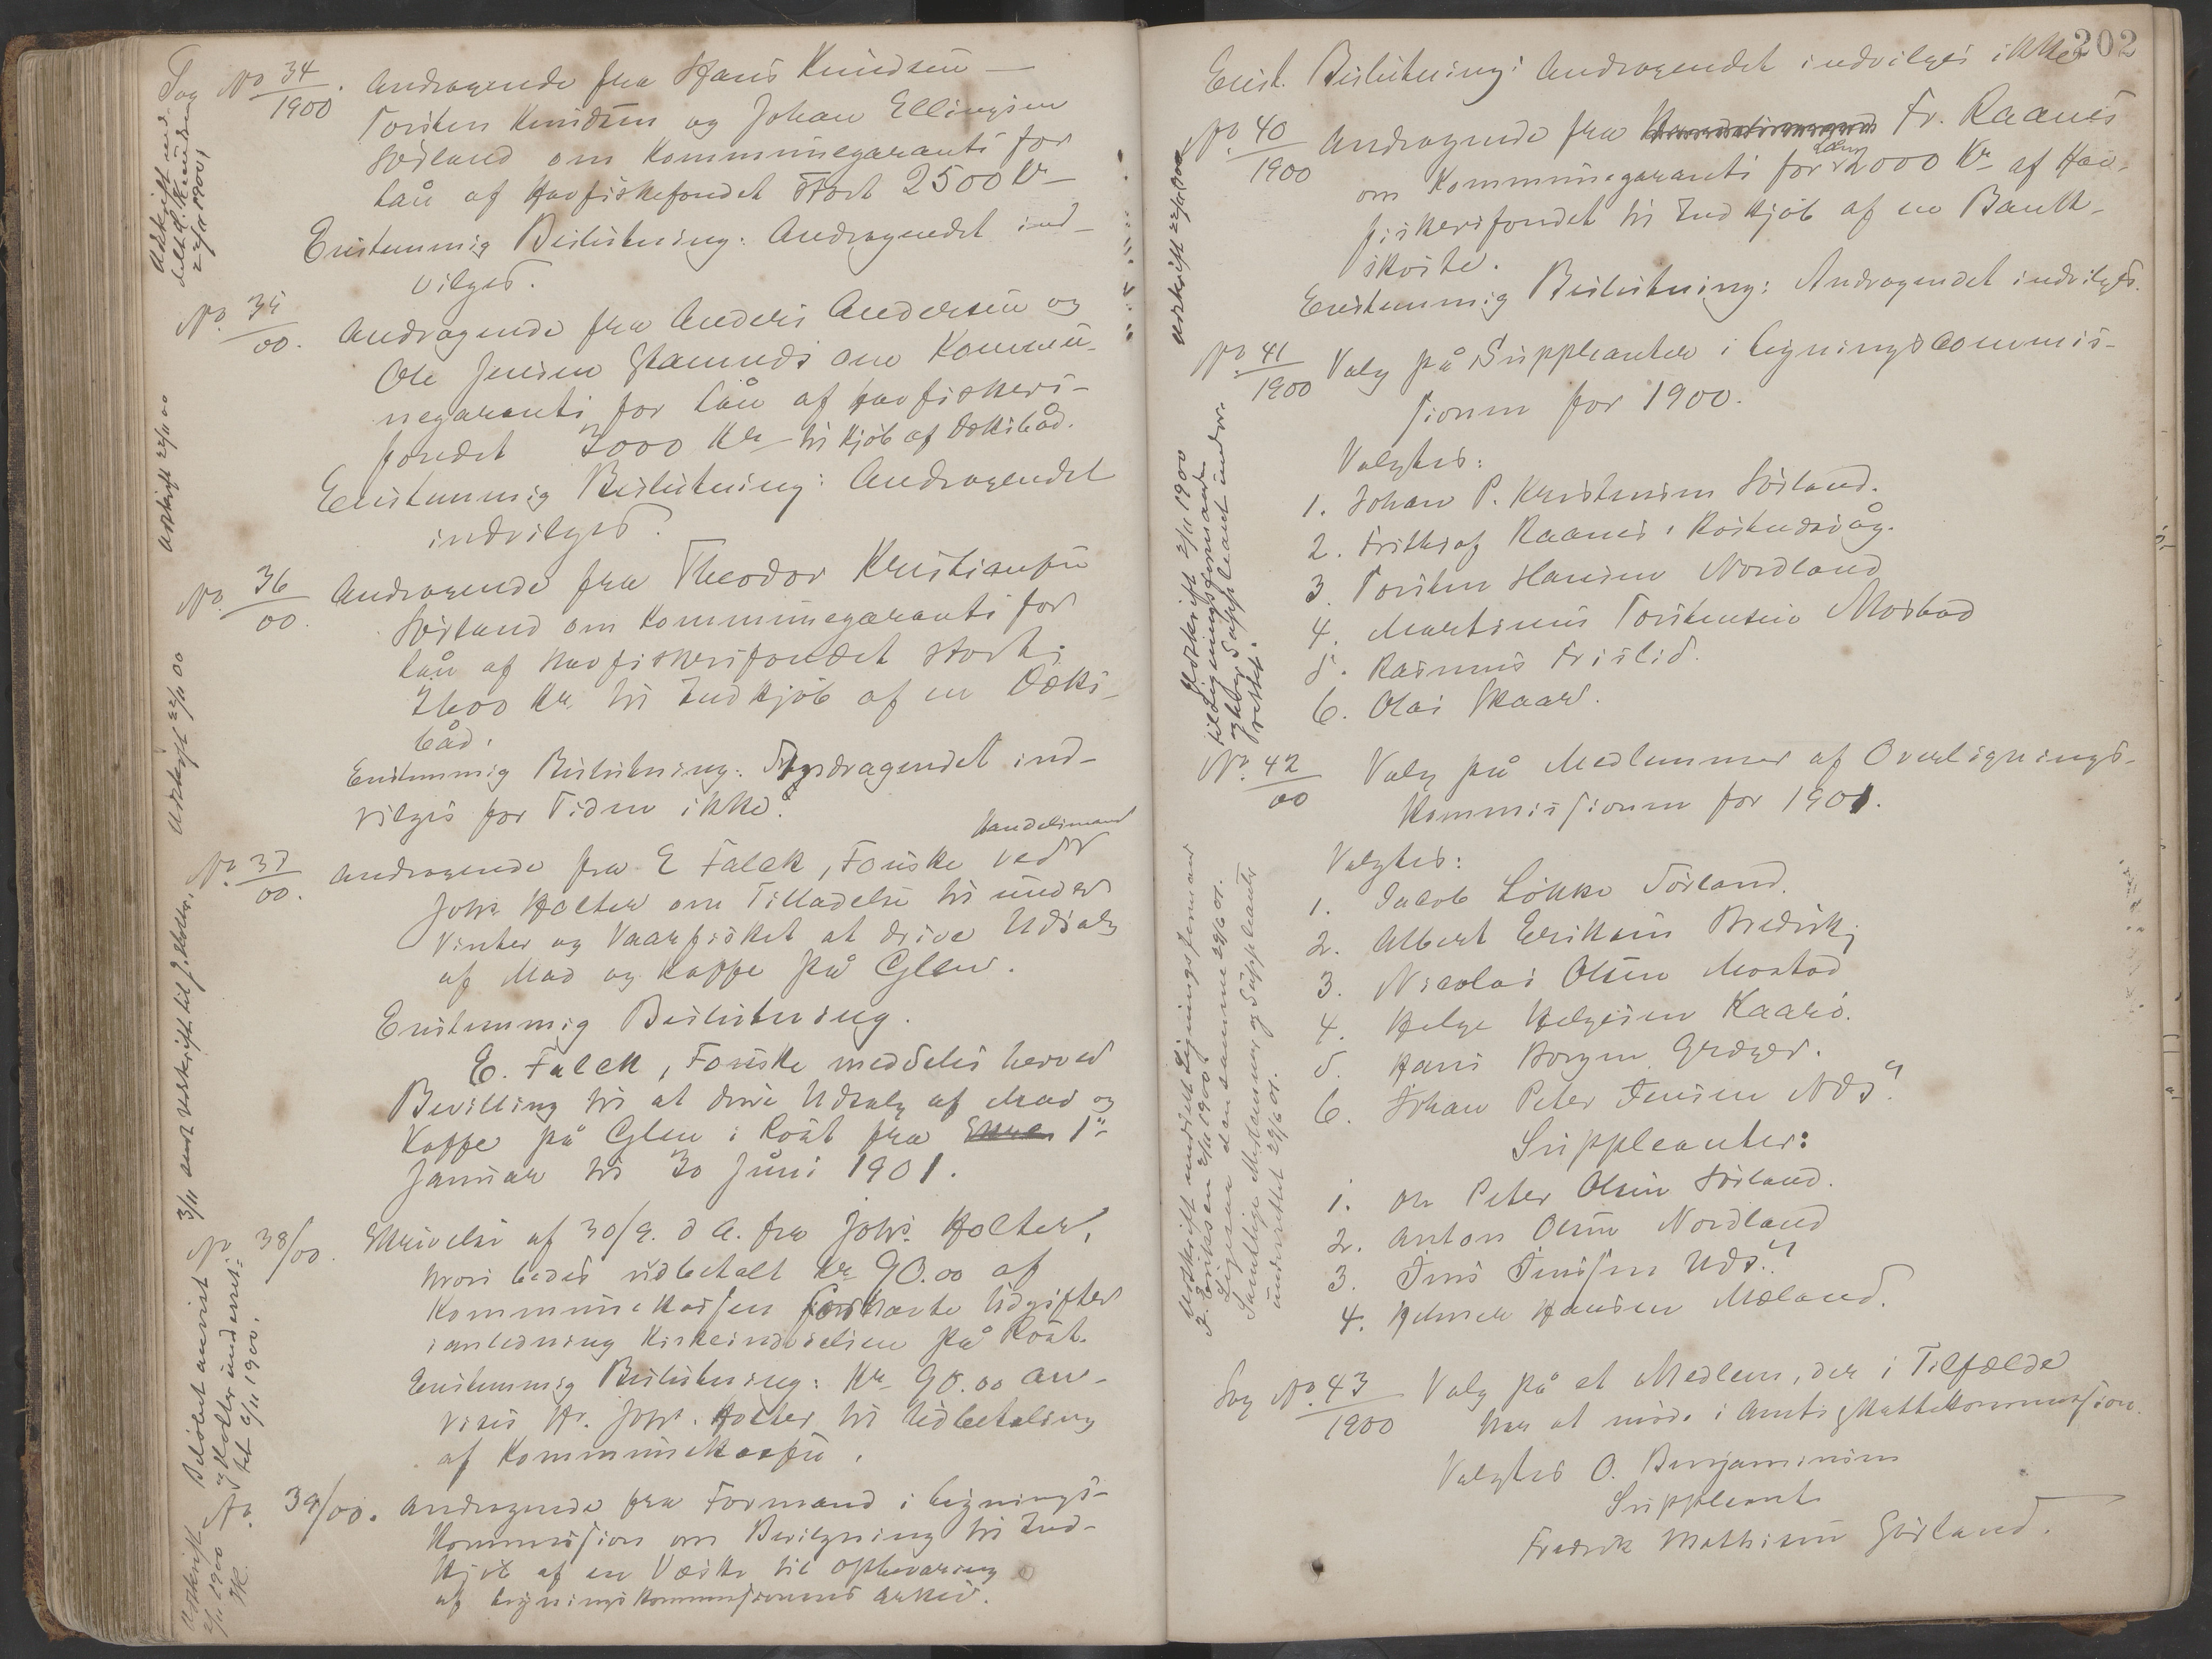 Sag No 34/1900. Andragende fra Hans Knudsen –
Torsten Knudsen og Johan Ellingsen
Sørland om Kommunegaranti for
Lån af Havfiskefondet stort 2500 Kr –
Enstemmig Beslutning: Andragendet ind-
vilges.
Udskrift ud
delt H. Knudsen
22/11 1900,
No. 35/00. Andragende fra Anders Andersen og
Ole Jensen Stamnes om Kommu-
negaranti for Lån af Havfiskeri-
fondet 3000 Kr til Kjøb af Dæksbåd.
Enstemmig Beslutning: Andragendet
indvilges.
Udskrift 22/11 00
No. 36/00. Andragende fra Theodor Kristiansen
Sørland om Kommunegaranti for
Lån af Havfiskerifondet stort
2600 Kr. til Indkjøb af en Dæks-
båd.
Enstemmig Beslutning: Andragendet ind-
vilges for Tiden ikke.
Udskrift 22/11 00
No. 37/00. Andragende fra E Falck, Fauske ved Handelsmand
Johs Holter om Tilladelse til under
Vinter og Vaarfisket at drive Udsalg
af Mad og Kaffe på Glen.
Enstemmig Beslutning.
E. Falck, Fauske meddeles herved
Bevilling til at drive Udsalg af Mad og
Kaffe på Glen i Røst fra 1ste
Januar til 30 Juni 1901.
3/11 sendt Udskrift til J. Holter.
No 38/00. Skrivelse af 30/9. d A. fra Johs. Holter,
hvori bedes udbetalt Kr 90.00 af
Kommunekassen for havte Udgifter
i anledning Kirkeindvielsen på Røst.
Enstemmig Beslutning: Kr 90.00 an-
vises Hr. Johs. Holter til Udbetaling
af Kommunekassen.
Beløbet anvist
og Holter underret-
tet 6/11 1900.
No. 39/00. Andragende fra Formand i Lignings-
kommission om Bevilgning til Ind-
kjøb af en Væske til Opbevaring
af Ligningskommissionens Arkiv.
Udskrift
2/11 1900
202
Enst. Beslutning: Andragendet indvilges ikke
No. 40/1900 Andragende fra Fr. Raanes
om Kommunegaranti for Lån 2000 Kr af Hav-
fiskerifondet til Indkjøb af en Bank-
skøite.
Enstemmig Beslutning: Andragendet indvilges.
Udskrift 22/11 1900
No. 41/1900 Valg på Suppleanter i Ligningscommis-
sionen for 1900.
Valgtes:
1. Johan P. Kristensen Sørland.
2. Frithjof Raanes, Køstnesvåg.
3. Torsten Hansen Nordland
4. Martinus Torstensen Mostad
5. Rasmus Frislid.
6. Olai Skaar.
Udskrift 2/11 1900
til Ligningsformanden
og hver Suppleant under-
rettet.
No. 42/00 Valg på Medlemmer af Overlignings-
kommissionen for 1901.
Valgtes:
1. Jacob Løkke Sørland.
2. Albert Eriksen Bredvik,
3. Nicolai Olsen Mostad
4. Helge Helgesen Kaarø.
5. Hans Borgen Græger.
6. Johan Peter Jensen Nds.
Suppleanter:
1. Ole Peter Olsen Sørland.
2. Anton Olsen Nordland
3. Jens Jenssen Uds.
4. Helmer Hansen Mæland.
Udskrift meddelt Ligningsformand
J. Eriksen 2/11 1900.
Ligesaa den samme 29/6 01.
Samtlige Medlemmer og Suppleanter
underrettet 29/6 01.
Sag No. 43/1900 Valg på et Medlem, der i Tilfælde
har at møde i Amtsskattekommission.
Valgtes O. Benjaminsen
Suppleant
Fredrik Mathisen Sørland.